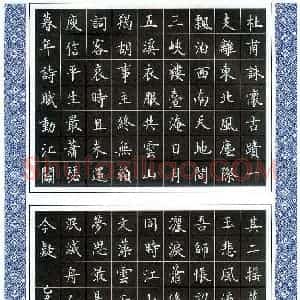 杜甫詠懷古蹟
支離東北風塵際
飄泊西南天地間
三峽樓臺淹日月
五溪衣服共雲山
羯胡事主終無賴
詞客哀時且未還
庾信平生最蕭瑟
暮年詩賦動江關
其二搖落
玉悲風流
吾師悵望
灑淚蕭條
同時江山
文藻雲雨
夢思最是
泯滅舟人
今疑